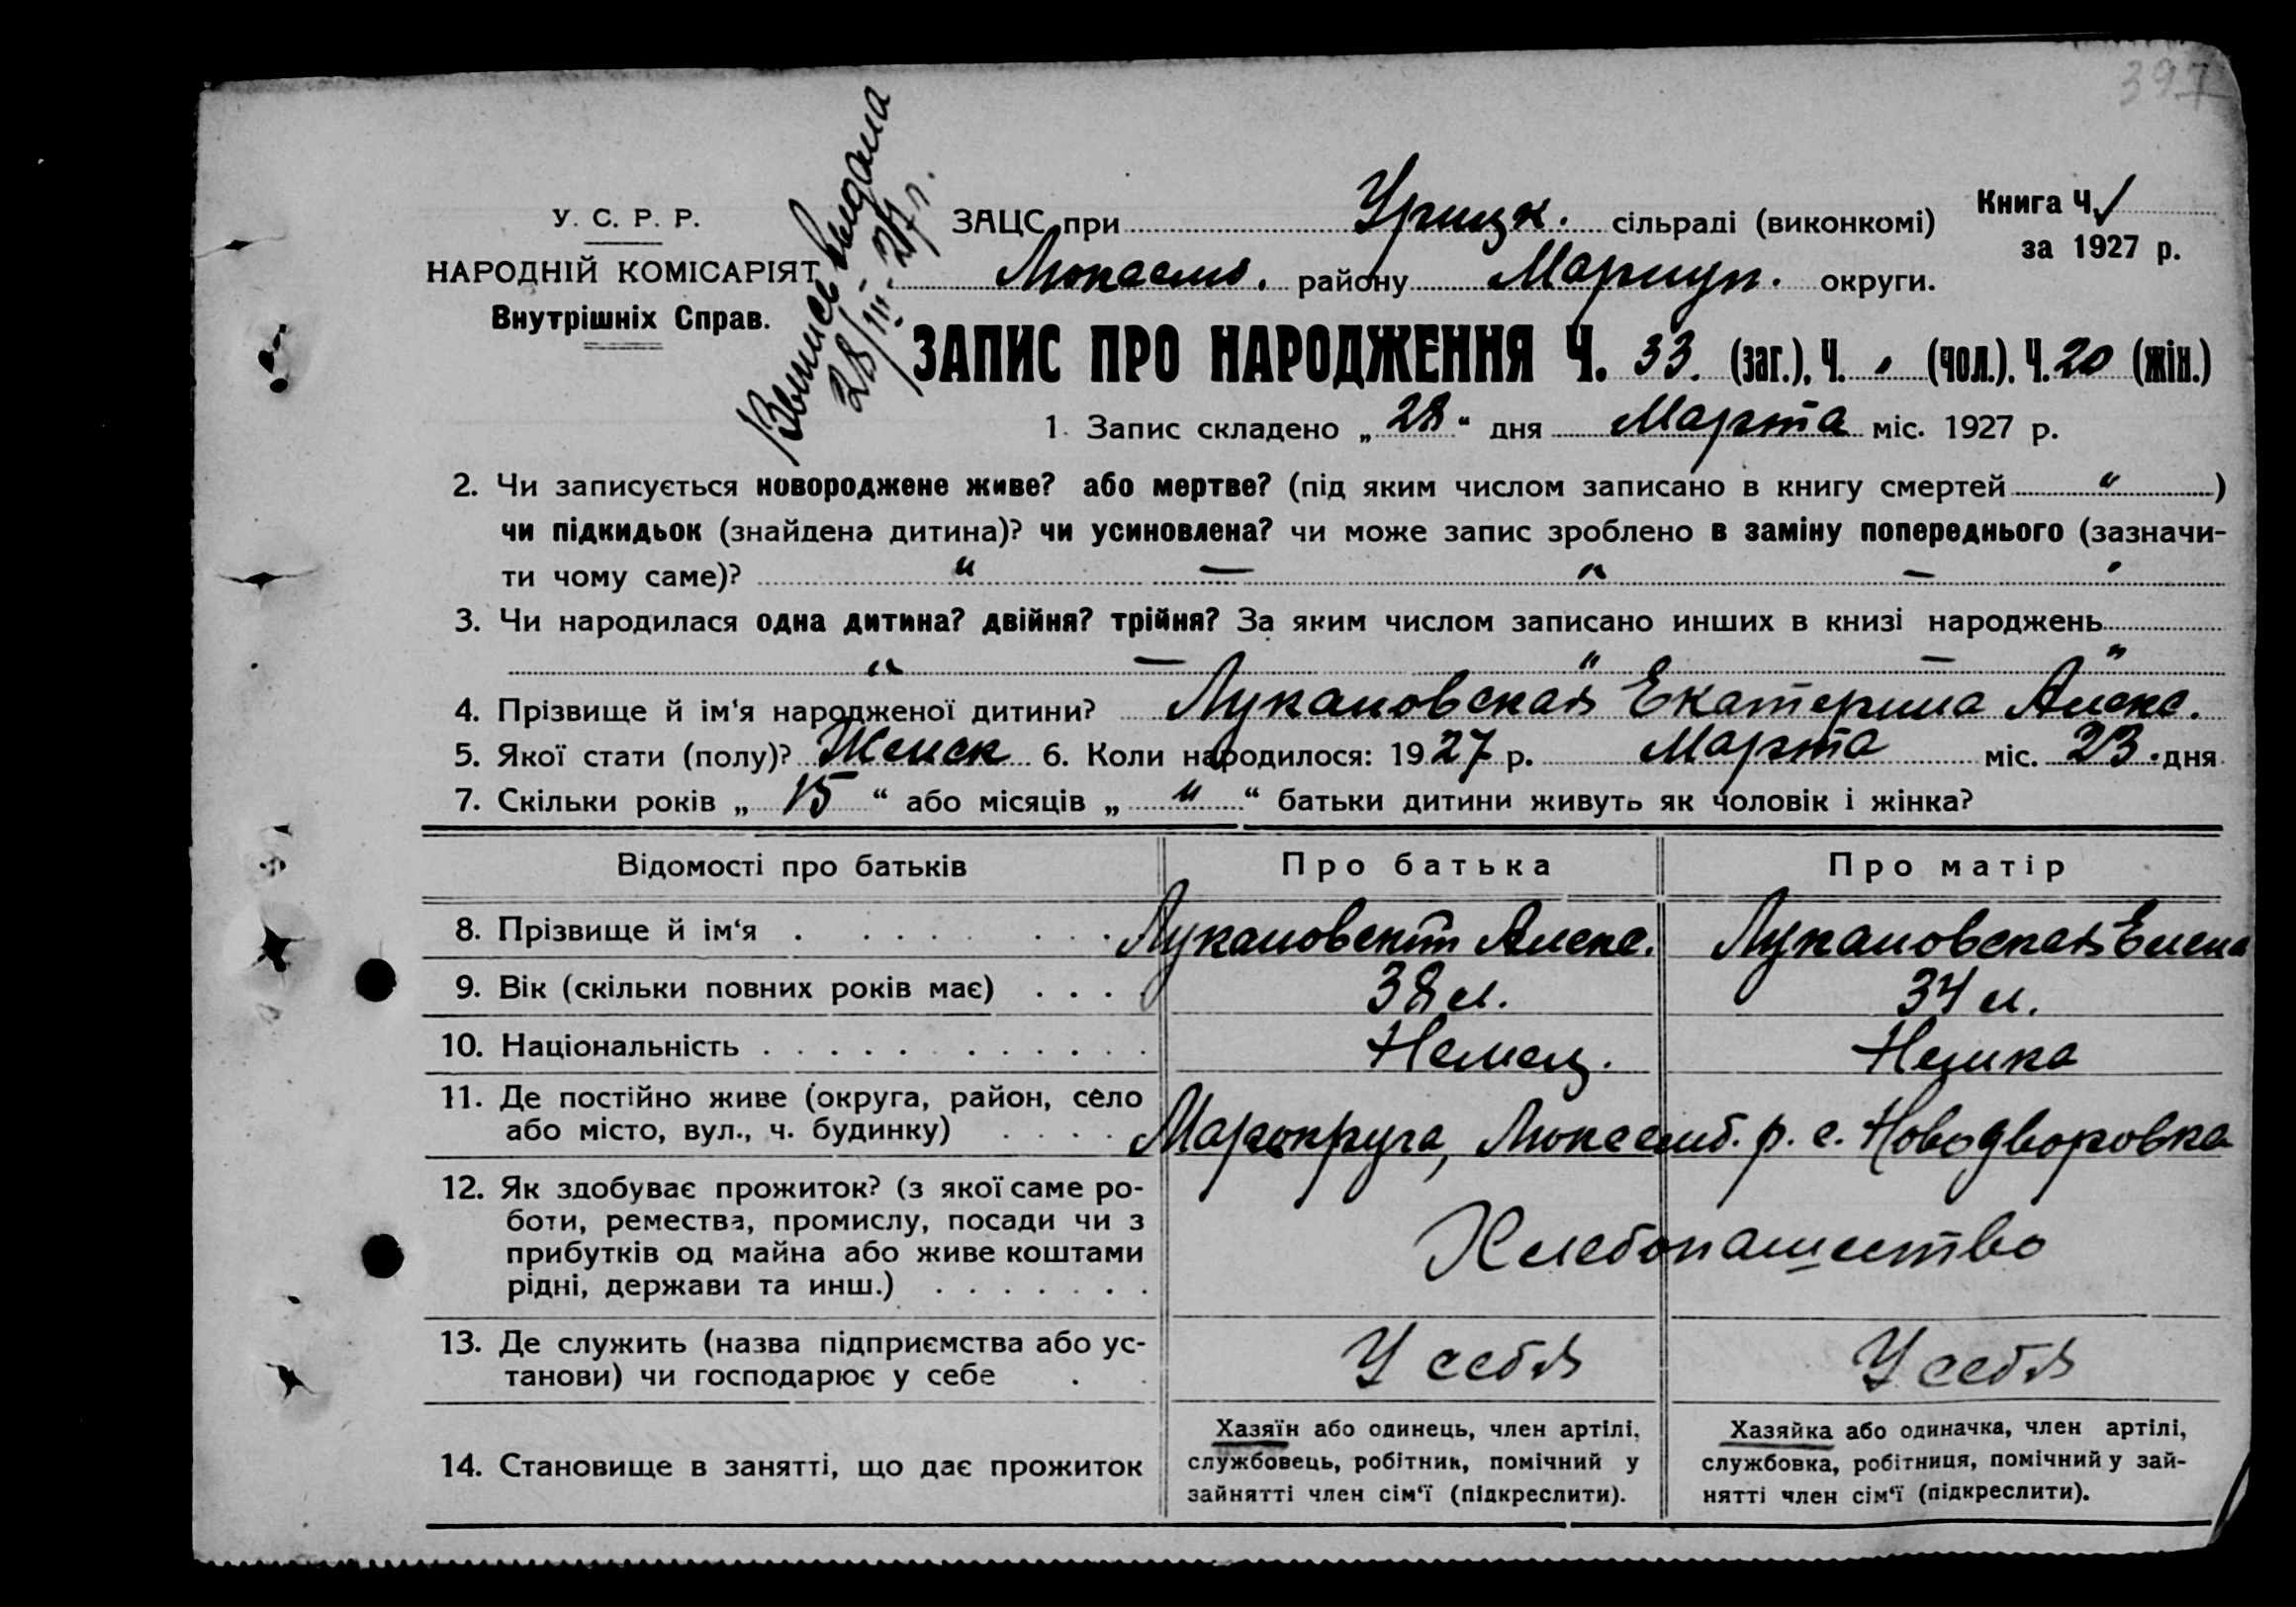 397
Выпись выдана
28/III-27 г.
У. С. Р. Р.
НАРОДНІЙ КОМІСАРІЯТ
Внутрішніх Справ.
ЗАЦС при Урицк. сільраді (виконкомі)
Люксемб. району Мариуп. округи.
Книга Ч. 1
за 1927 р.
ЗАПИС ПРО НАРОДЖЕННЯ Ч. 33. (заг.), Ч. (чол.). Ч. 20 (жін.)
1. Запис складено „ 28 “ дня Марта міс. 1927 р.
2. Чи записується новороджене живе? або мертве? (під яким числом записано в книгу смертей " )
чи підкидьок (знайдена дитина)? чи усиновлена? чи може запис зроблено в заміну попереднього (зазначи-
ти чому саме)? " — " — "
3. Чи народилася одна дитина? двійня? трійня? За яким числом записано инших в книзі народжень
" — " — "
4. Прізвище й ім'я народженої дитини? Лукановская Екатерина Алекс.
5. Якої стати (полу)? Женск 6. Коли народилося: 1927 р. Марта міс. 23. дня
7. Скільки років „ 15 “ або місяців „ " “ батьки дитини живуть як чоловік і жінка?
Відомості про батьків Про батька Про матір
8. Прізвище й ім'я Лукановский Алекс. Лукановская Елена
9. Вік (скільки повних років має) 38 л. 34 л.
10. Національність Немец. Немка
11. Де постійно живе (округа, район, село
або місто, вул., ч. будинку) Маропруга, Люксемб. р. с. Новодворовка
12. Як здобуває прожиток? (з якої саме ро-
боти, ремества, промислу, посади чи з
прибутків од майна або живе коштами
рідні, держави та инш.) Хлебопашество
13. Де служить (назва підприємства або ус-
танови) чи господарює у себе У себя У себя
14. Становище в занятті, що дає прожиток
Хазяїн або одинець, член артілі,
службовець, робітник, помічний у
зайнятті член сім'ї (підкреслити).
Хазяйка або одиначка, член артілі,
службовка, робітниця, помічний у зай-
нятті член сім'ї (підкреслити).